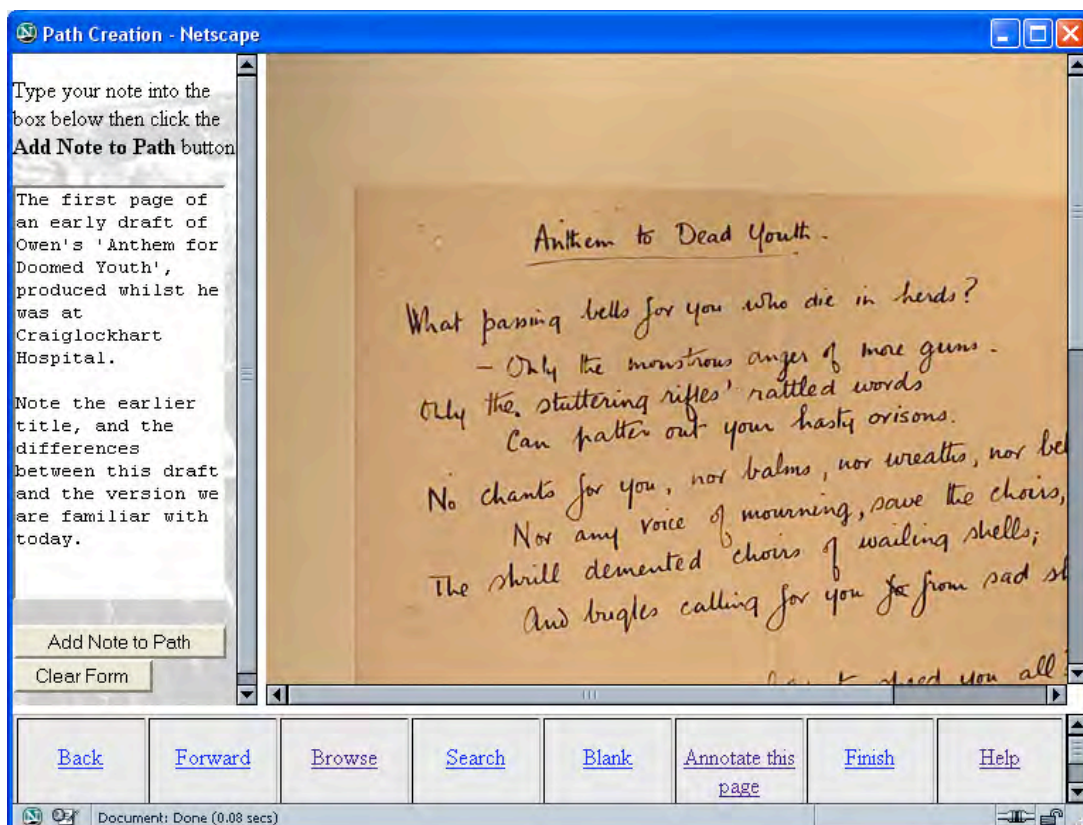 Path Creation - Netscape
Type your note into the
box below then click the
Add Note to Path button
The first page of
an early draft of
Owen's 'Anthem for
Doomed Youth',
produced whilst he
was at
Craiglockhart
Hospital.
Note the earlier
title, and the
differences
between this draft
and the version we
are familiar with
today.
Add Note to Path
Clear Form
Anthem to Dead Youth.
What passing bells for you who die in herds?
- Only the monstrous anger of more guns.
Only the stuttering rifles' rattled words
Can patter out your hasty orisons.
No chants for you, nor balms, nor wreaths, nor
Nor any voice of mourning, save the choirs,
The shrill demented choirs of wailing shells;
And bugles calling for you from sad
to speed you all
Back
Forward
Browse
Search
Blank
Annotate this
page
Finish
Help
Document: Done (0.08 secs)